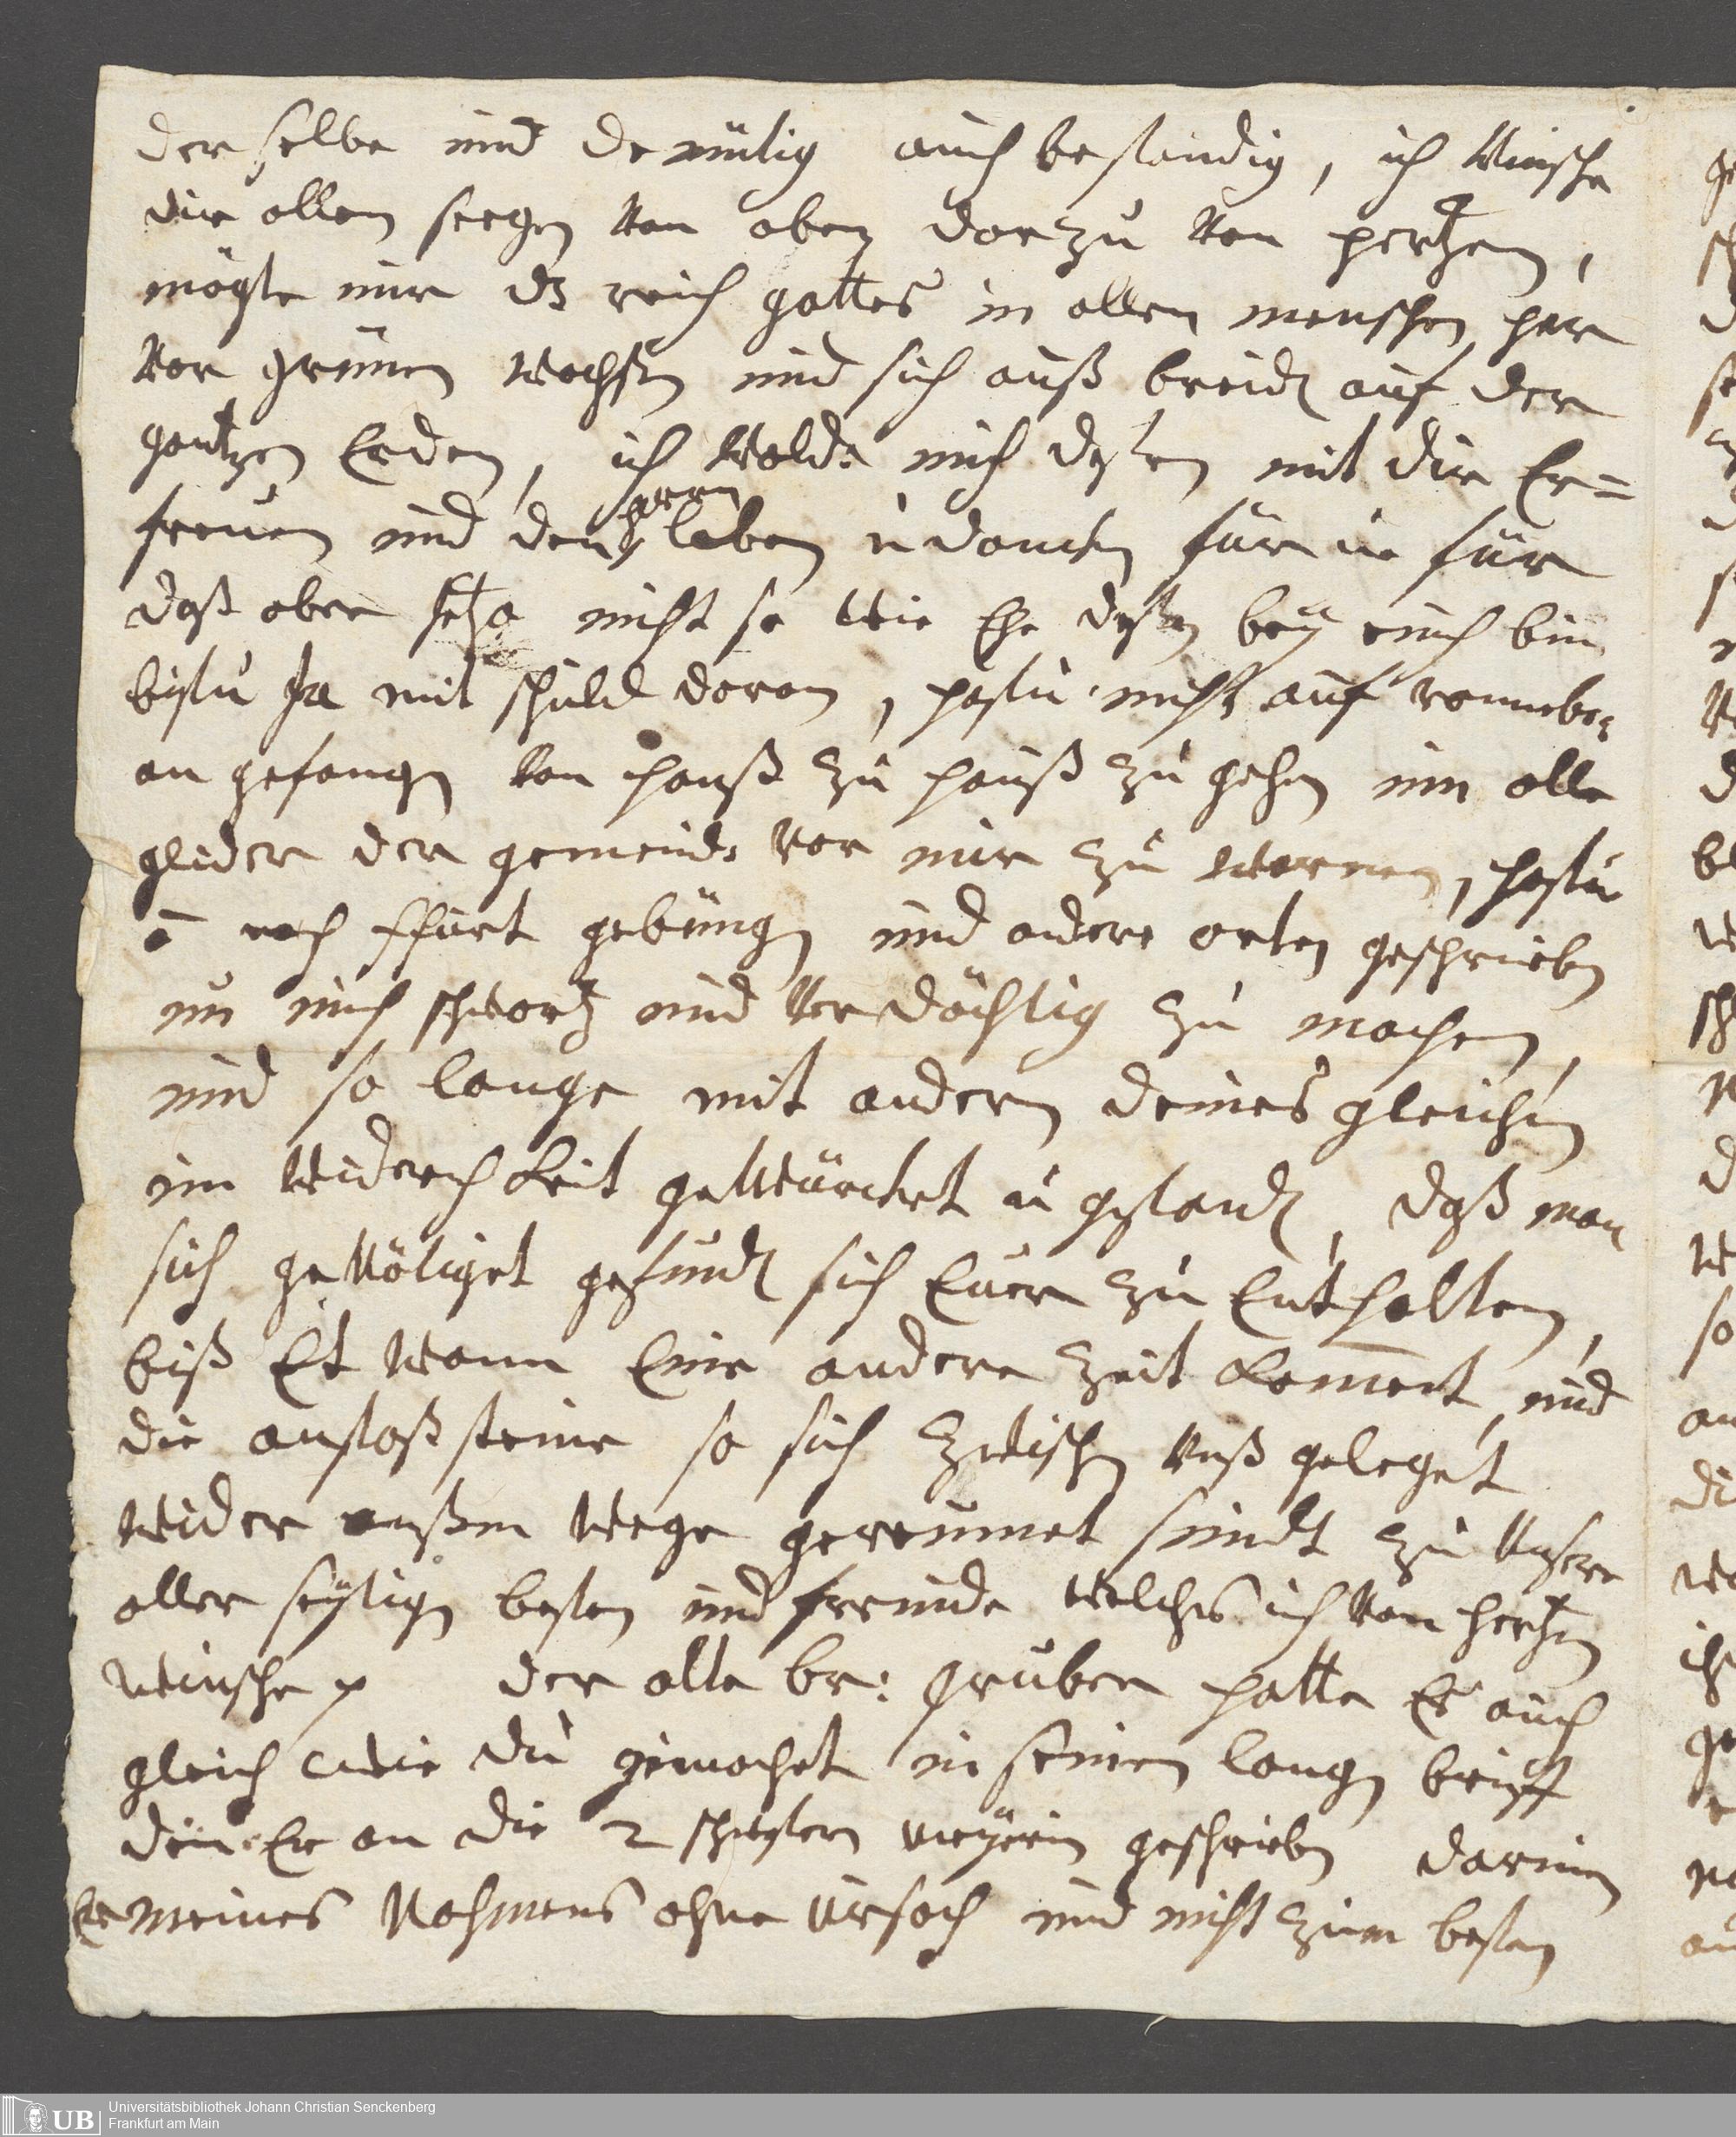 der selbe und demütig auch bestandig, ich Wünsche
dir allen seegen Von oben darzu Von hertzen,
mögte nur dz reich gottes in allen menschen her
Vor grünen wachsen und sich auß breiden auf der
gantzen Erden, ich Wolde mich deßen mit dir Er=
freuen und den herrn loben u dancken für u für
daß aber jetzo nicht so Wie Ehe deßen bey euch bin
bistu Ja mit schuld daran, hastu nicht auf ronneb:
an gefangen Von hauß zu hauß zu gehen um alle
glieder der gemeinde Vor mir zu Warnen, hastu
nach ffurt gebüngen und andere orten geschrieben
um mich schwartz und Verdächtig zu machen,
und so lange mit andern deines gleichen
im Widrich keit geWürcket u gestanden, daß man
sich geNötiget gefunden sich Euer zu Enthalten,
biß Et wann Eine andere zeit kommet, und
die anstoß steine so sich zwischen Unß geleget
Wider außem Wege gereumet sindt zu Unsere
aller seytigen besten und freunde Welches ich Von hertzen
Wünsche der alte br: gruber hatte Es auch
gleich wie du gemachet in seinen langen brieff
den Er an die 2 schwestern meyerin geschrieben darinnen
Er meines Nahmens ohne Ursach und nicht zum besten
Universitätsbibliothek Johann Christian Senckenberg
Frankfurt am Main
UB